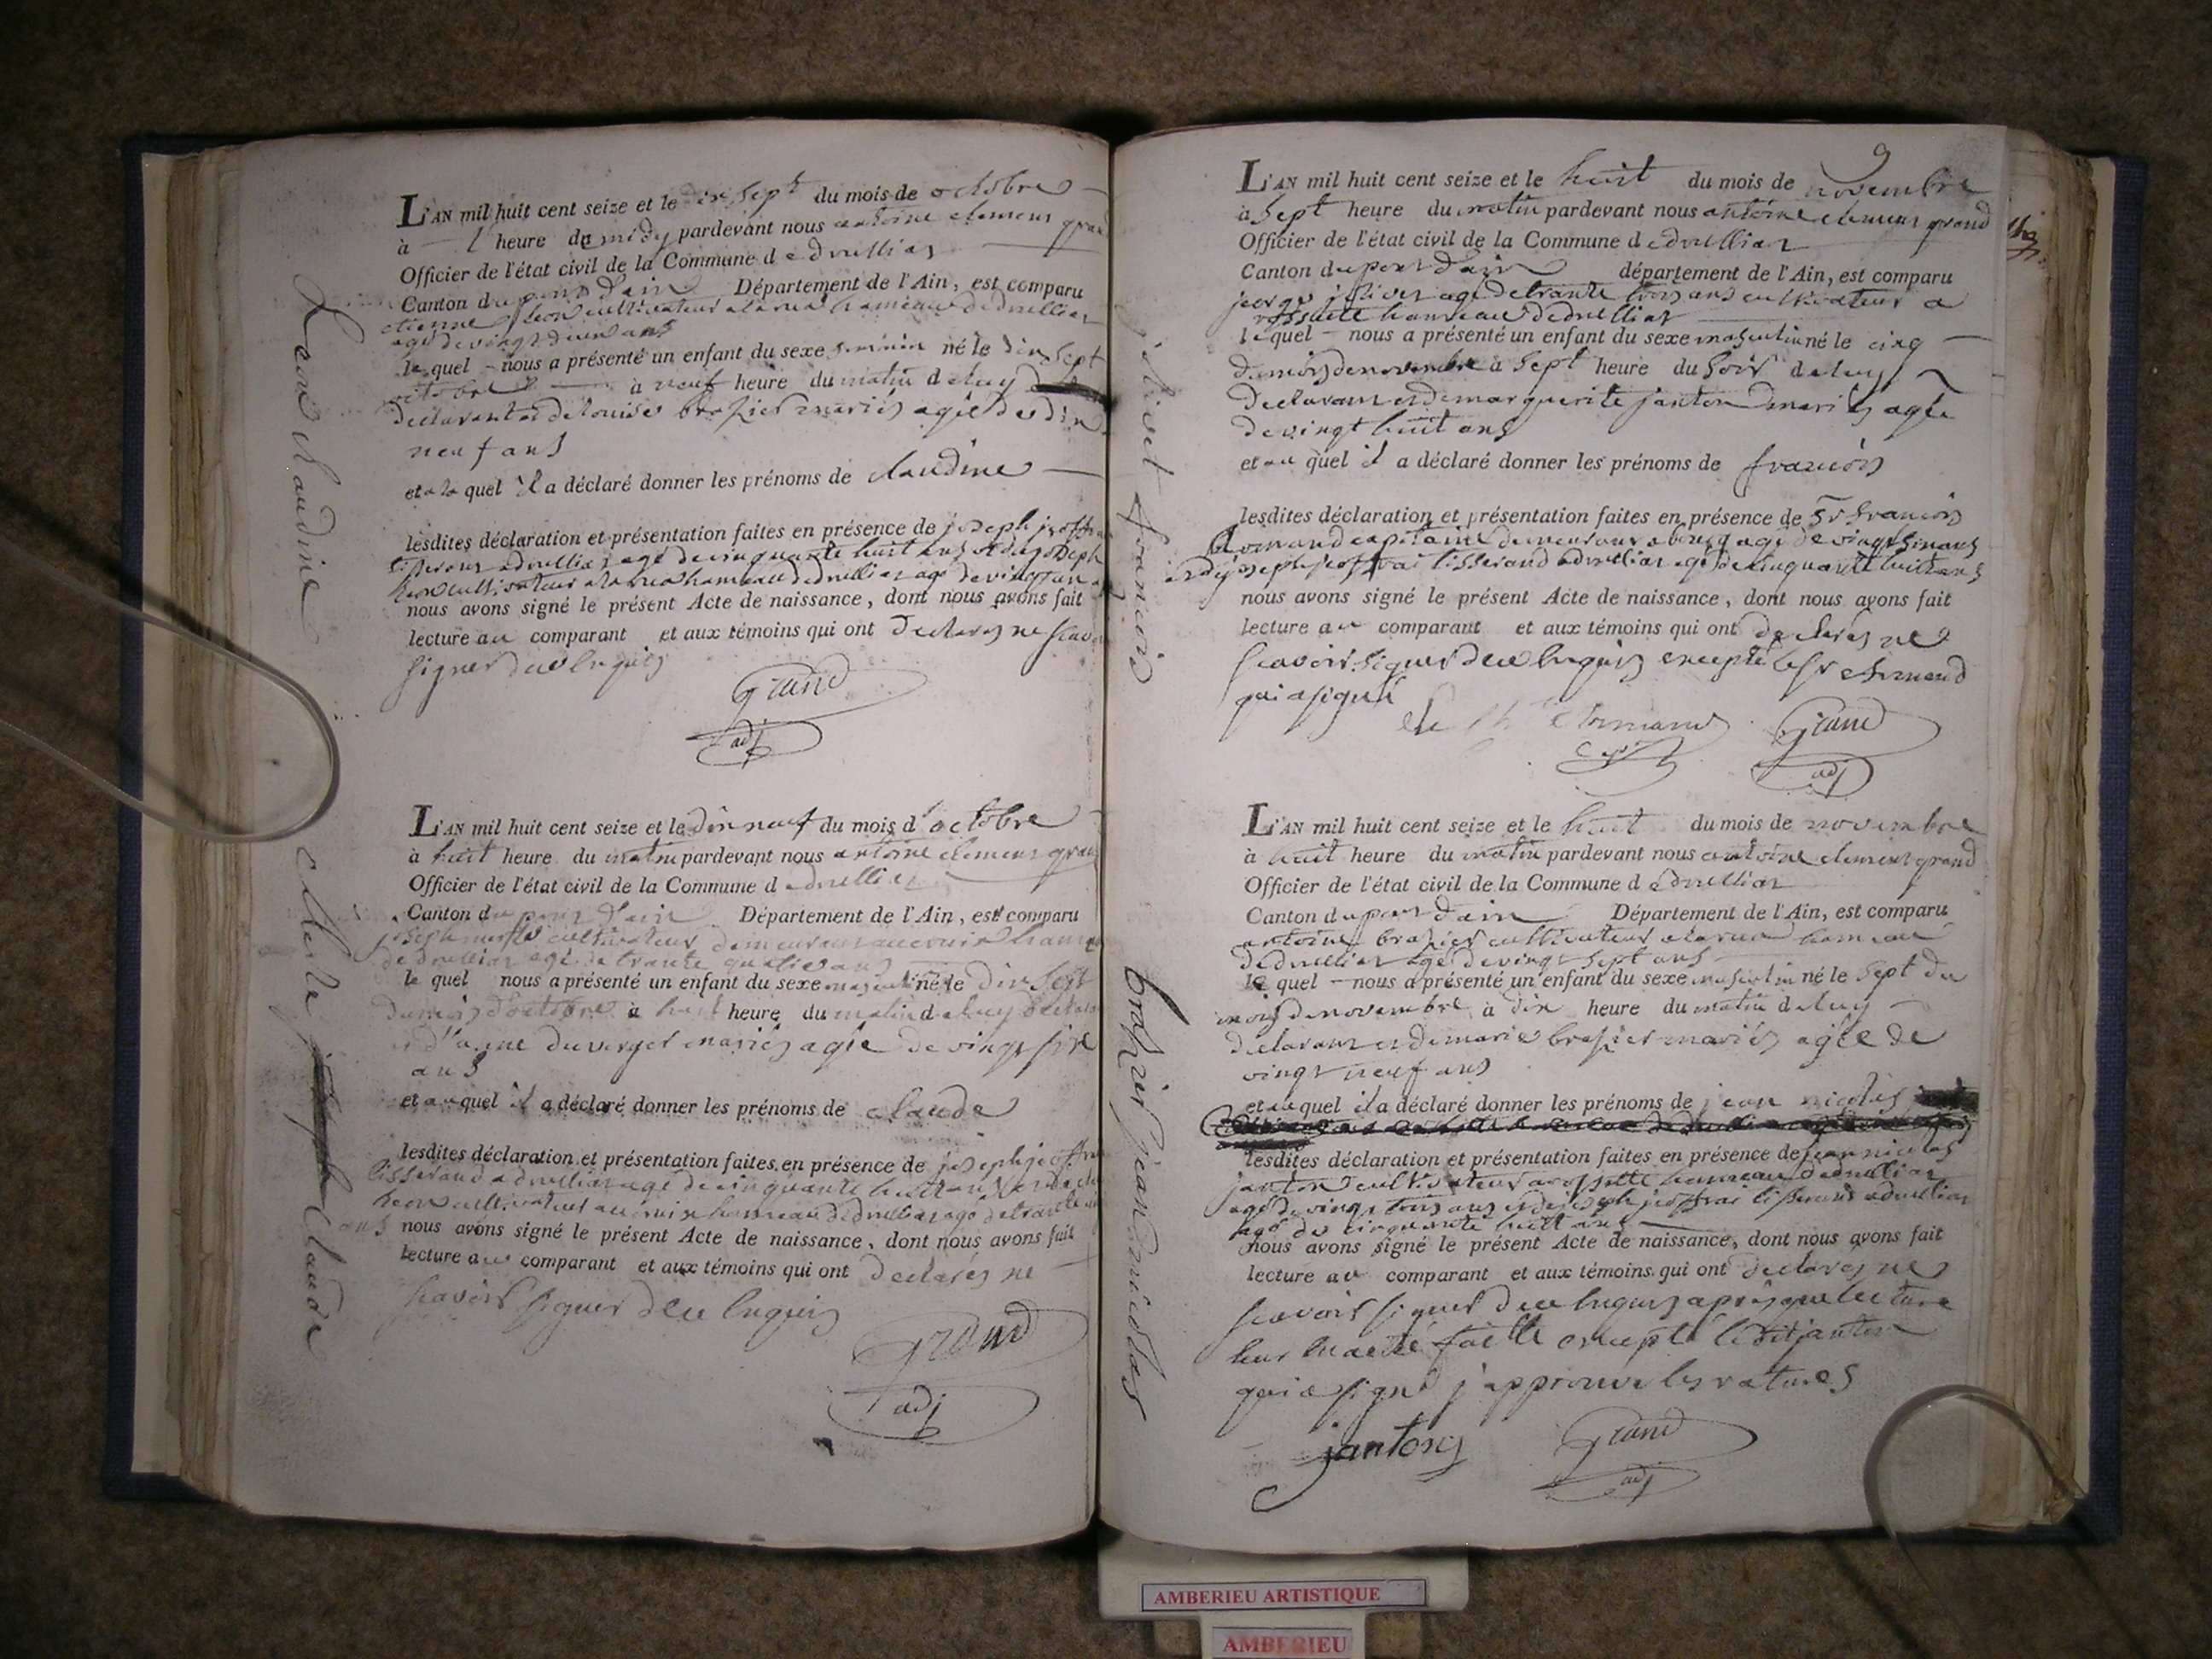 L'AN mil huit cent seize et le dix sept du mois de octobre
à l heure de midy pardevant nous antoine clement grand
Officier de l'état civil de la Commune d edruillias
Canton du pont d'ain Département de l'Ain, est comparu
etienne heon cultivateur a la rua hameau dedruillias
agé de vingt deux ans
le quel nous a présenté un enfant du sexe feminin né le dix sept
octobre à neuf heure du matin de luy
declarant et de louise brazier mariés agée de dix
neuf ans
et a la quel il a déclaré donner les prénoms de claudine
lesdites déclaration et présentation faites en présence de joseph jeoffrai
tisserand adruillias agé de cinquante huit ans et de joseph
heon cultivateur a la rua hameau dedruillias agé de vingt un
nous avons signé le présent Acte de naissance, dont nous avons fait
lecture au comparant et aux témoins qui ont declarés ne scavoir
signer de ce enquis
Grand
adj
heon claudine
L'AN mil huit cent seize et le dix neuf du mois d'octobre
à huit heure du matin pardevant nous antoine clement grand
Officier de l'état civil de la Commune d edruillias
Canton du pont d'ain Département de l'Ain, est comparu
joseph merle cultivateur demeurant au cruix hameau
dedruillias agé de trante quatre ans
le quel nous a présenté un enfant du sexe masculin né le dix sept
du mois d'octobre à huit heure du matin de luy declarant
et d' duverger mariés agée de vingt six
ans
et au quel il a déclaré donner les prénoms de claude
lesdites déclaration et présentation faites en présence de joseph jeoffrai
tisserand adruillias agé de cinquante huit ans et de
heon cultivateur au cruix hameau dedruillias agé de trante
ans nous avons signé le présent Acte de naissance, dont nous avons fait
lecture au comparant et aux témoins qui ont declarés ne
scavoir signer de ce enquis
Grand
adj
Merle joseph claude
9
L'AN mil huit cent seize et le huit du mois de novembre
à sept heure du matin pardevant nous antoine clement grand
Officier de l'état civil de la Commune d edruillias
Canton du pont d'ain département de l'Ain, est comparu
jeorge jolivet agé de trante trois ans cultivateur a
rossette hameau dedruillias
le quel nous a présenté un enfant du sexe masculin né le cinq
du mois de novembre à sept heure du soir de luy
declarant et de marguerite janton mariés agée
de vingt huit ans
et au quel il a déclaré donner les prénoms de francois
lesdites déclaration et présentation faites en présence de Sr francois
capitaine demeurant a bourg agé de vingt ans
et de joseph jeoffrai tisserand adruillias agé de cinquante huit ans
nous avons signé le présent Acte de naissance, dont nous avons fait
lecture au comparant et aux témoins qui ont declarés ne
scavoir signer de ce enquis excepté le Sr
qui a signé
Grand
adj
jolivet francois
L'AN mil huit cent seize et le huit du mois de novembre
à huit heure du matin pardevant nous antoine clement grand
Officier de l'état civil de la Commune d edruillias
Canton du pont d'ain Département de l'Ain, est comparu
antoine brazier cultivateur a la rua hameau
dedruillias agé de vingt sept ans
le quel nous a présenté un enfant du sexe masculin né le sept du
mois de novembre à dix heure du matin de luy
declarant et de marie brazier mariés agée de
vingt neuf ans
et au quel il a déclaré donner les prénoms de jean nicolas
lesdites déclaration et présentation faites en présence de jean nicolas
janton cultivateur a rossette hameau dedruillias
agé de vingt trois ans et de joseph jeoffrai tisserand adruillias
agé de cinquante huit ans
nous avons signé le présent Acte de naissance, dont nous avons fait
lecture au comparant et aux témoins qui ont declarés ne
scavoir signer de ce enquis après que lecture
leur en a été faitte excepté le dit janton
qui a signé j'approuve les ratures
janton
Grand
adj
brazier jean nicolas
AMBERIEU ARTISTIQUE
AMBERIEU